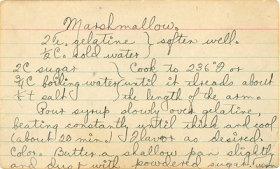 Marshmallow.
2 T. gelatine } soften well.
½ C. cold water
2 C sugar } Cook to 236° F or
¾ C boiling water } until it threads about
¼ t salt } the length of the arm.
Pour syrup slowly over gelatine
beating constantly until thick and cool
(about 20 min.) Flavor as desired
Color. Butter a shallow pan slightly
and dust with powdered sugar.